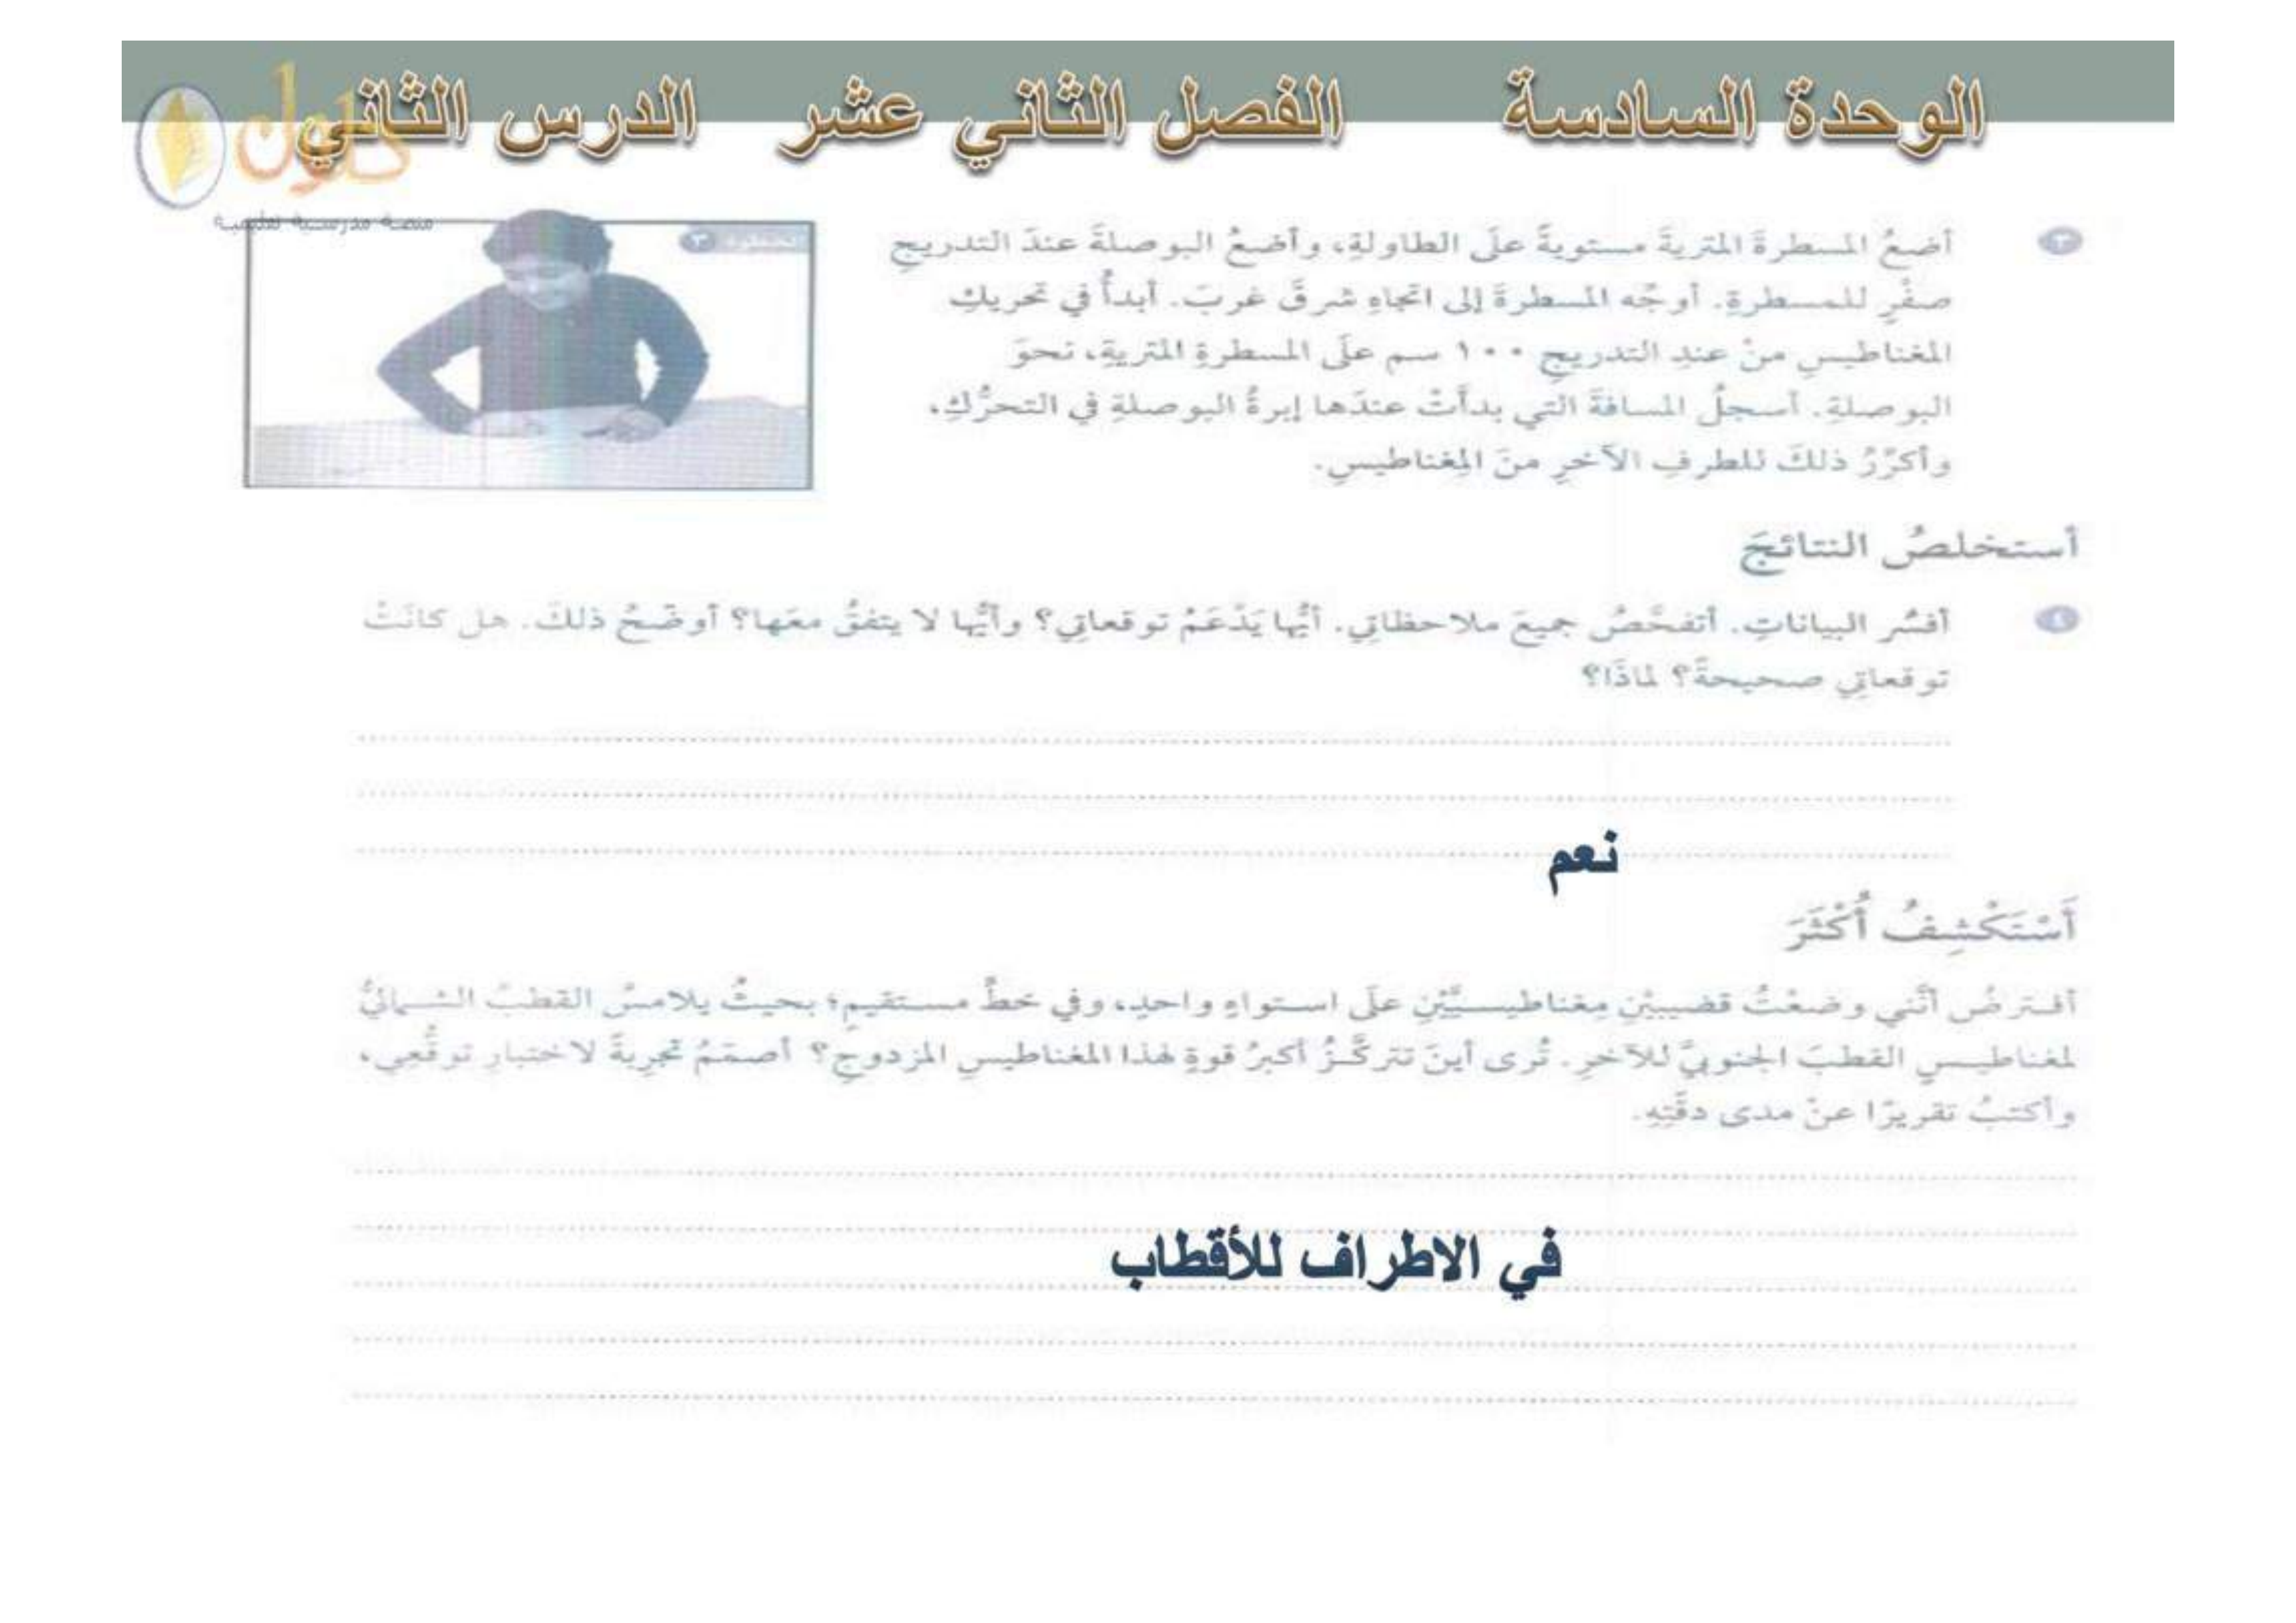 الوحدة السادسة الفصل الثاني عشر الدرس الثاني
حلول
منصة مدرسية تعليمية
الخطوة ٣
٣ أضعُ المسطرةَ المتريةَ مستويةً علَى الطاولةِ، وأضعُ البوصلةَ عندَ التدريجِ
صفْرٍ للمسطرةِ. أوجِّه المسطرةَ إلى اتجاهِ شرقَ غربَ. أبدأُ في تحريكِ
المغناطيسِ منْ عندِ التدريجِ ١٠٠ سم علَى المسطرةِ المتريةِ، نحوَ
البوصلةِ. أسجلُ المسافةَ التي بدأَتْ عندَها إبرةُ البوصلةِ في التحرُّكِ،
وأكرِّرُ ذلكَ للطرفِ الآخرِ منَ المِغناطيسِ.
أستخلصُ النتائجَ
٤ أفسِّر البياناتِ. أتفحَّصُ جميعَ ملاحظاتِي. أيُّها يَدْعَمُ توقعاتِي؟ وأيُّها لا يتفقُ معَها؟ أوضِّحُ ذلكَ. هل كانَتْ
توقعاتِي صحيحةً؟ لماذَا؟
نعم
أَسْتَكْشِفُ أَكْثَرَ
أفترضُ أنَّني وضعْتُ قضيبيْنِ مِغناطيسيَّيْنِ علَى استواءٍ واحدٍ، وفي خطٍّ مستقيمٍ؛ بحيثُ يلامسُ القطبُ الشماليُّ
لمغناطيسٍ القطبَ الجنوبيَّ للآخرِ. تُرى أينَ تتركَّزُ أكبرُ قوةٍ لهذا المغناطيسِ المزدوجِ؟ أصمّمُ تجربةً لاختبارِ توقُّعِي،
وأكتبُ تقريرًا عنْ مدى دقَّتِهِ.
في الاطراف للأقطاب